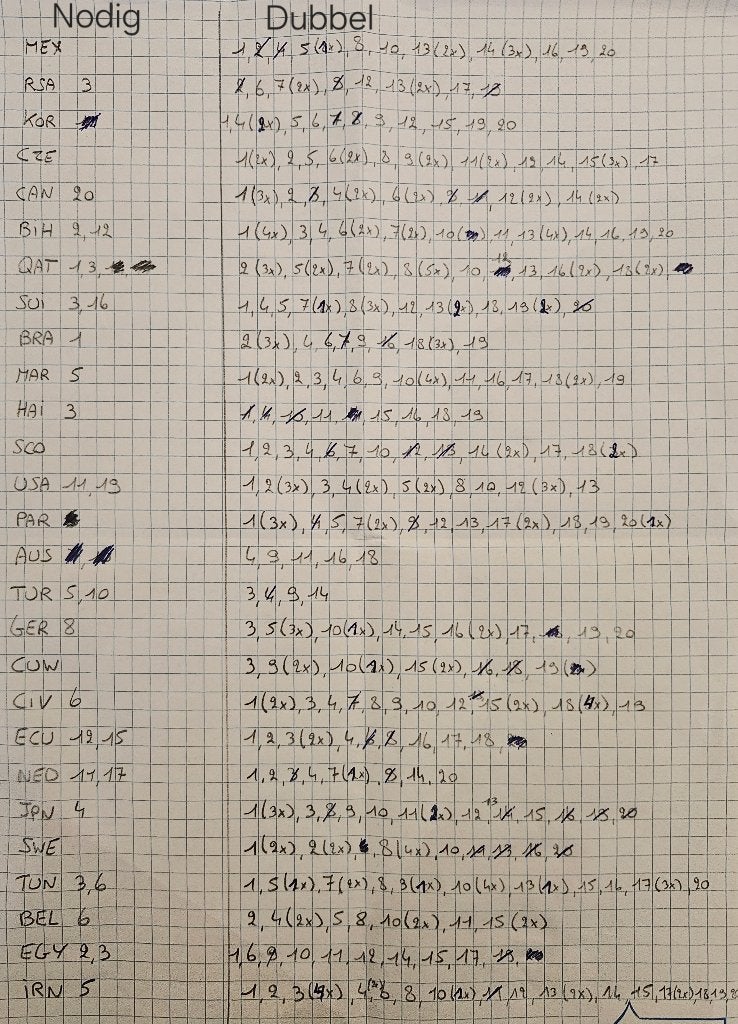 Nodig Dubbel
MEX 1, 2, 4, 5(1x), 8, 10, 13(2x), 14(3x), 16, 19, 20
RSA 3 2, 6, 7(2x), 8, 12, 13(2x), 17, 18
KOR 1, 4(2x), 5, 6, 7, 8, 9, 12, 15, 19, 20
CZE 1(2x), 2, 5, 6(2x), 8, 9(2x), 11(2x), 12, 14, 15(3x), 17
CAN 20 1(3x), 2, 3, 4(2x), 6(2x), 8, 11, 12(2x), 14(2x)
BIH 2, 12 1(4x), 3, 4, 6(2x), 7(2x), 10, 11, 13(4x), 14, 16, 19, 20
QAT 13, 2(3x), 5(2x), 7(2x), 8(5x), 10, 12, 13, 16(2x), 18(2x),
SUI 3, 16 1, 4, 5, 7(1x), 8(3x), 12, 13(2x), 18, 19(2x), 20
BRA 1 2(3x), 4, 6, 7, 9, 16, 18(3x), 19
MAR 5 1(2x), 2, 3, 4, 6, 9, 10(4x), 11, 16, 17, 18(2x), 19
HAI 3 1, 4, 10, 11, 15, 16, 18, 19
SCO 1, 2, 3, 4, 6, 7, 10, 12, 13, 14(2x), 17, 18(2x)
USA 11, 19 1, 2(3x), 3, 4(2x), 5(2x), 8, 10, 12(3x), 13
PAR 1(3x), 4, 5, 7(2x), 8, 12, 13, 17(2x), 18, 19, 20(1x)
AUS 4, 9, 11, 16, 18
TUR 5, 10 3, 4, 9, 14
GER 8 3, 5(3x), 10(1x), 14, 15, 16(2x), 17, 19, 20
CUW 3, 9(2x), 10(1x), 15(2x), 16, 18, 19
CIV 6 1(2x), 3, 4, 7, 8, 9, 10, 12, 15(2x), 18(4x), 19
ECU 12, 15 1, 2, 3(2x), 4, 6, 8, 16, 17, 18,
NED 11, 17 1, 2, 3, 4, 7(1x), 8, 14, 20
JPN 4 1(3x), 3, 8, 9, 10, 11(2x), 12, 13, 14, 15, 16, 18, 20
SWE 1(2x), 2(2x), 8(4x), 10, 11, 13, 16, 20
TUN 3, 6 1, 5(1x), 7(2x), 8, 9(1x), 10(4x), 13(1x), 15, 16, 17(3x), 20
BEL 6 2, 4(2x), 5, 8, 10(2x), 11, 15(2x)
EGY 2, 3 1, 6, 9, 10, 11, 12, 14, 15, 17, 19,
IRN 5 1, 2, 3(4x), 4(2x), 6, 8, 10(1x), 11, 12, 13(2x), 14, 15, 17(2x), 18, 19